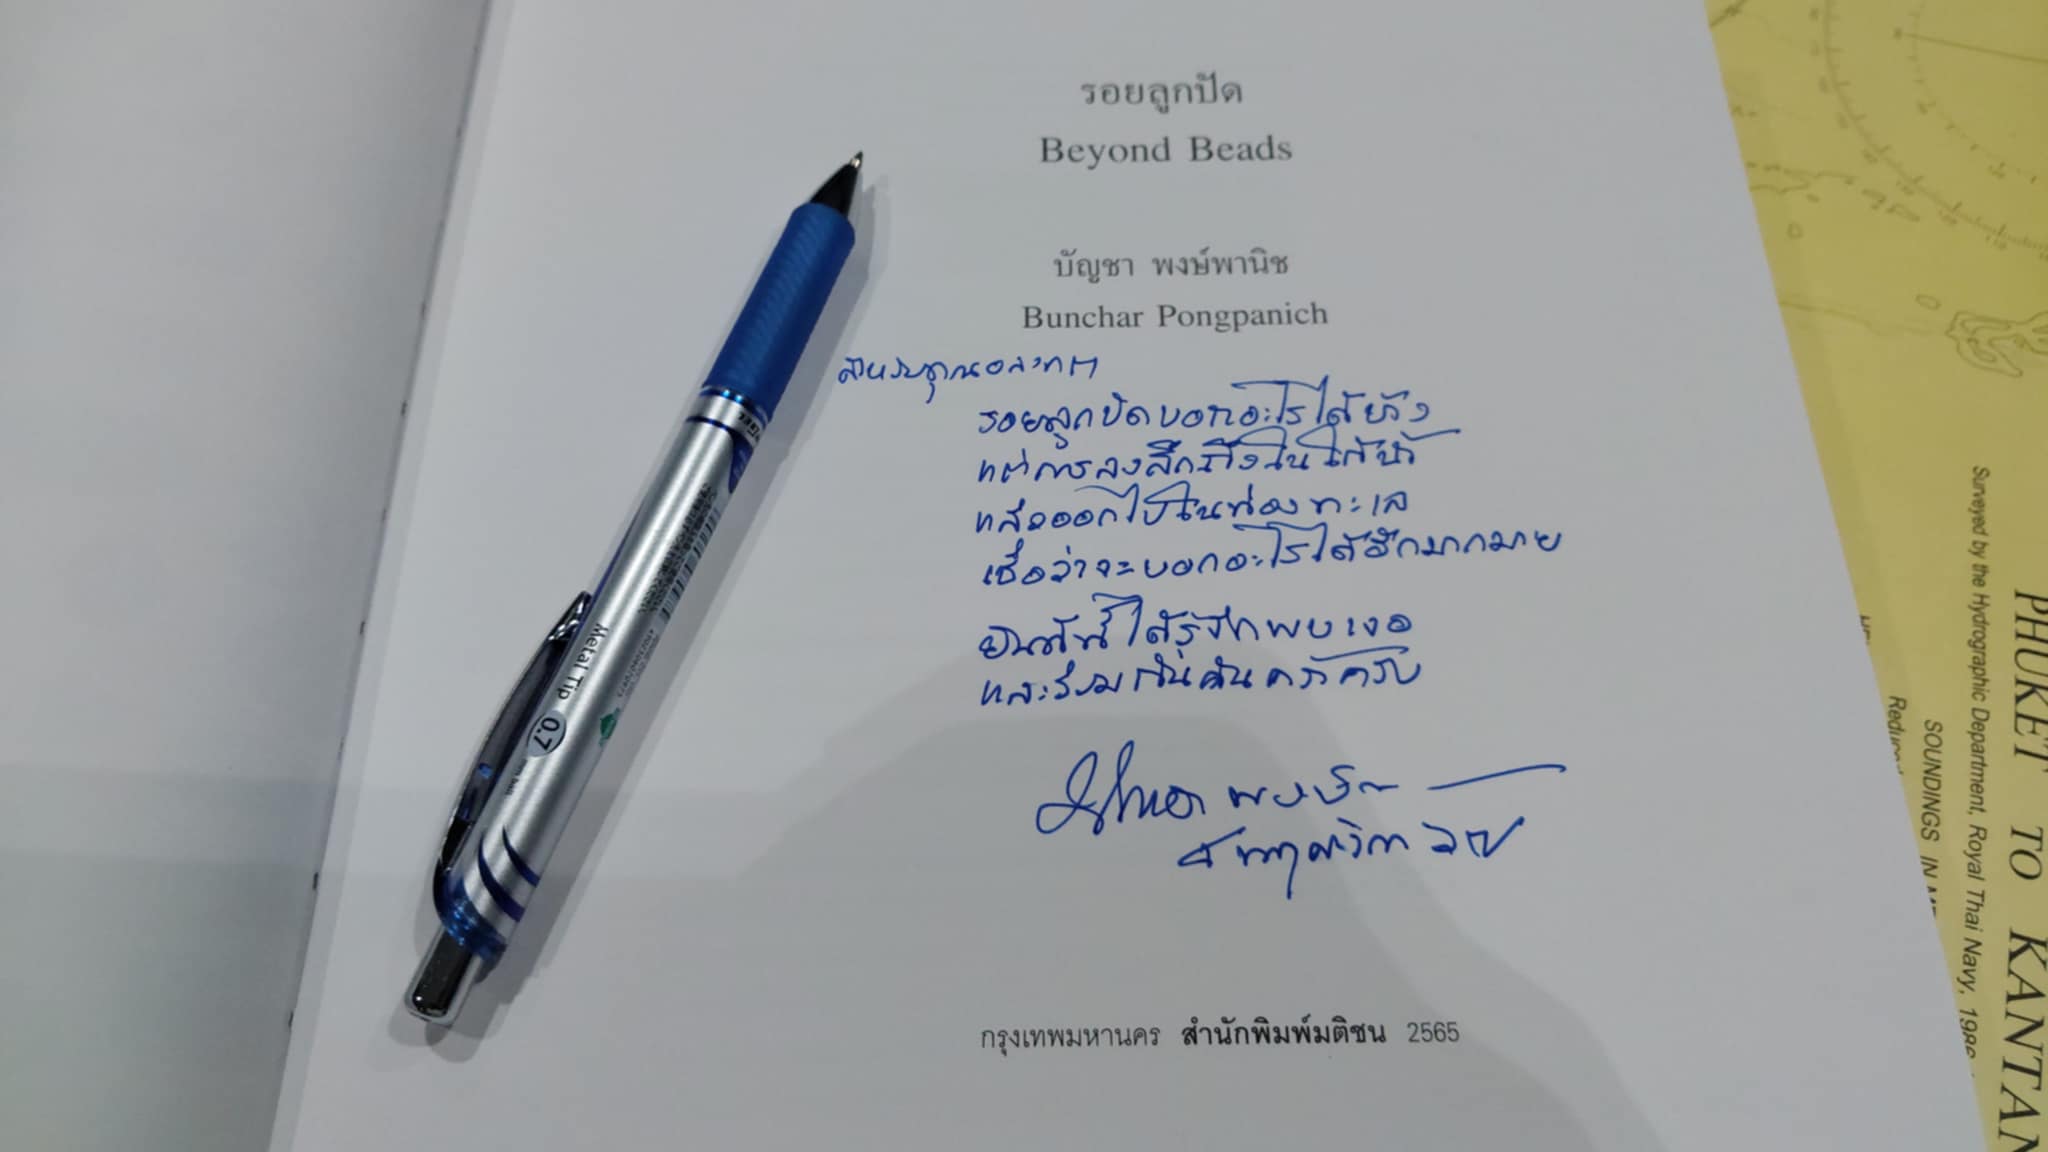 รอยลูกปัด
Beyond Beads
บัญชา พงษ์พานิช
Bunchar Pongpanich
สำหรับคุณ
รอยลูกปัดบอกอะไรได้บ้าง
แต่การลงลึกถึงในใต้น้ำ
แล้วออกไปในท้องทะเล
เชื่อว่าจะบอกอะไรได้อีกมากมาย
ยินดีที่ได้รู้จักพบเจอ
และร่วมกันค้นคว้าครับ
กรุงเทพมหานคร สำนักพิมพ์มติชน 2565
Metal Tip
0.7
PHUKET TO KANTAN
SOUNDINGS IN
Surveyed by the Hydrographic Department, Royal Thai Navy, 1986